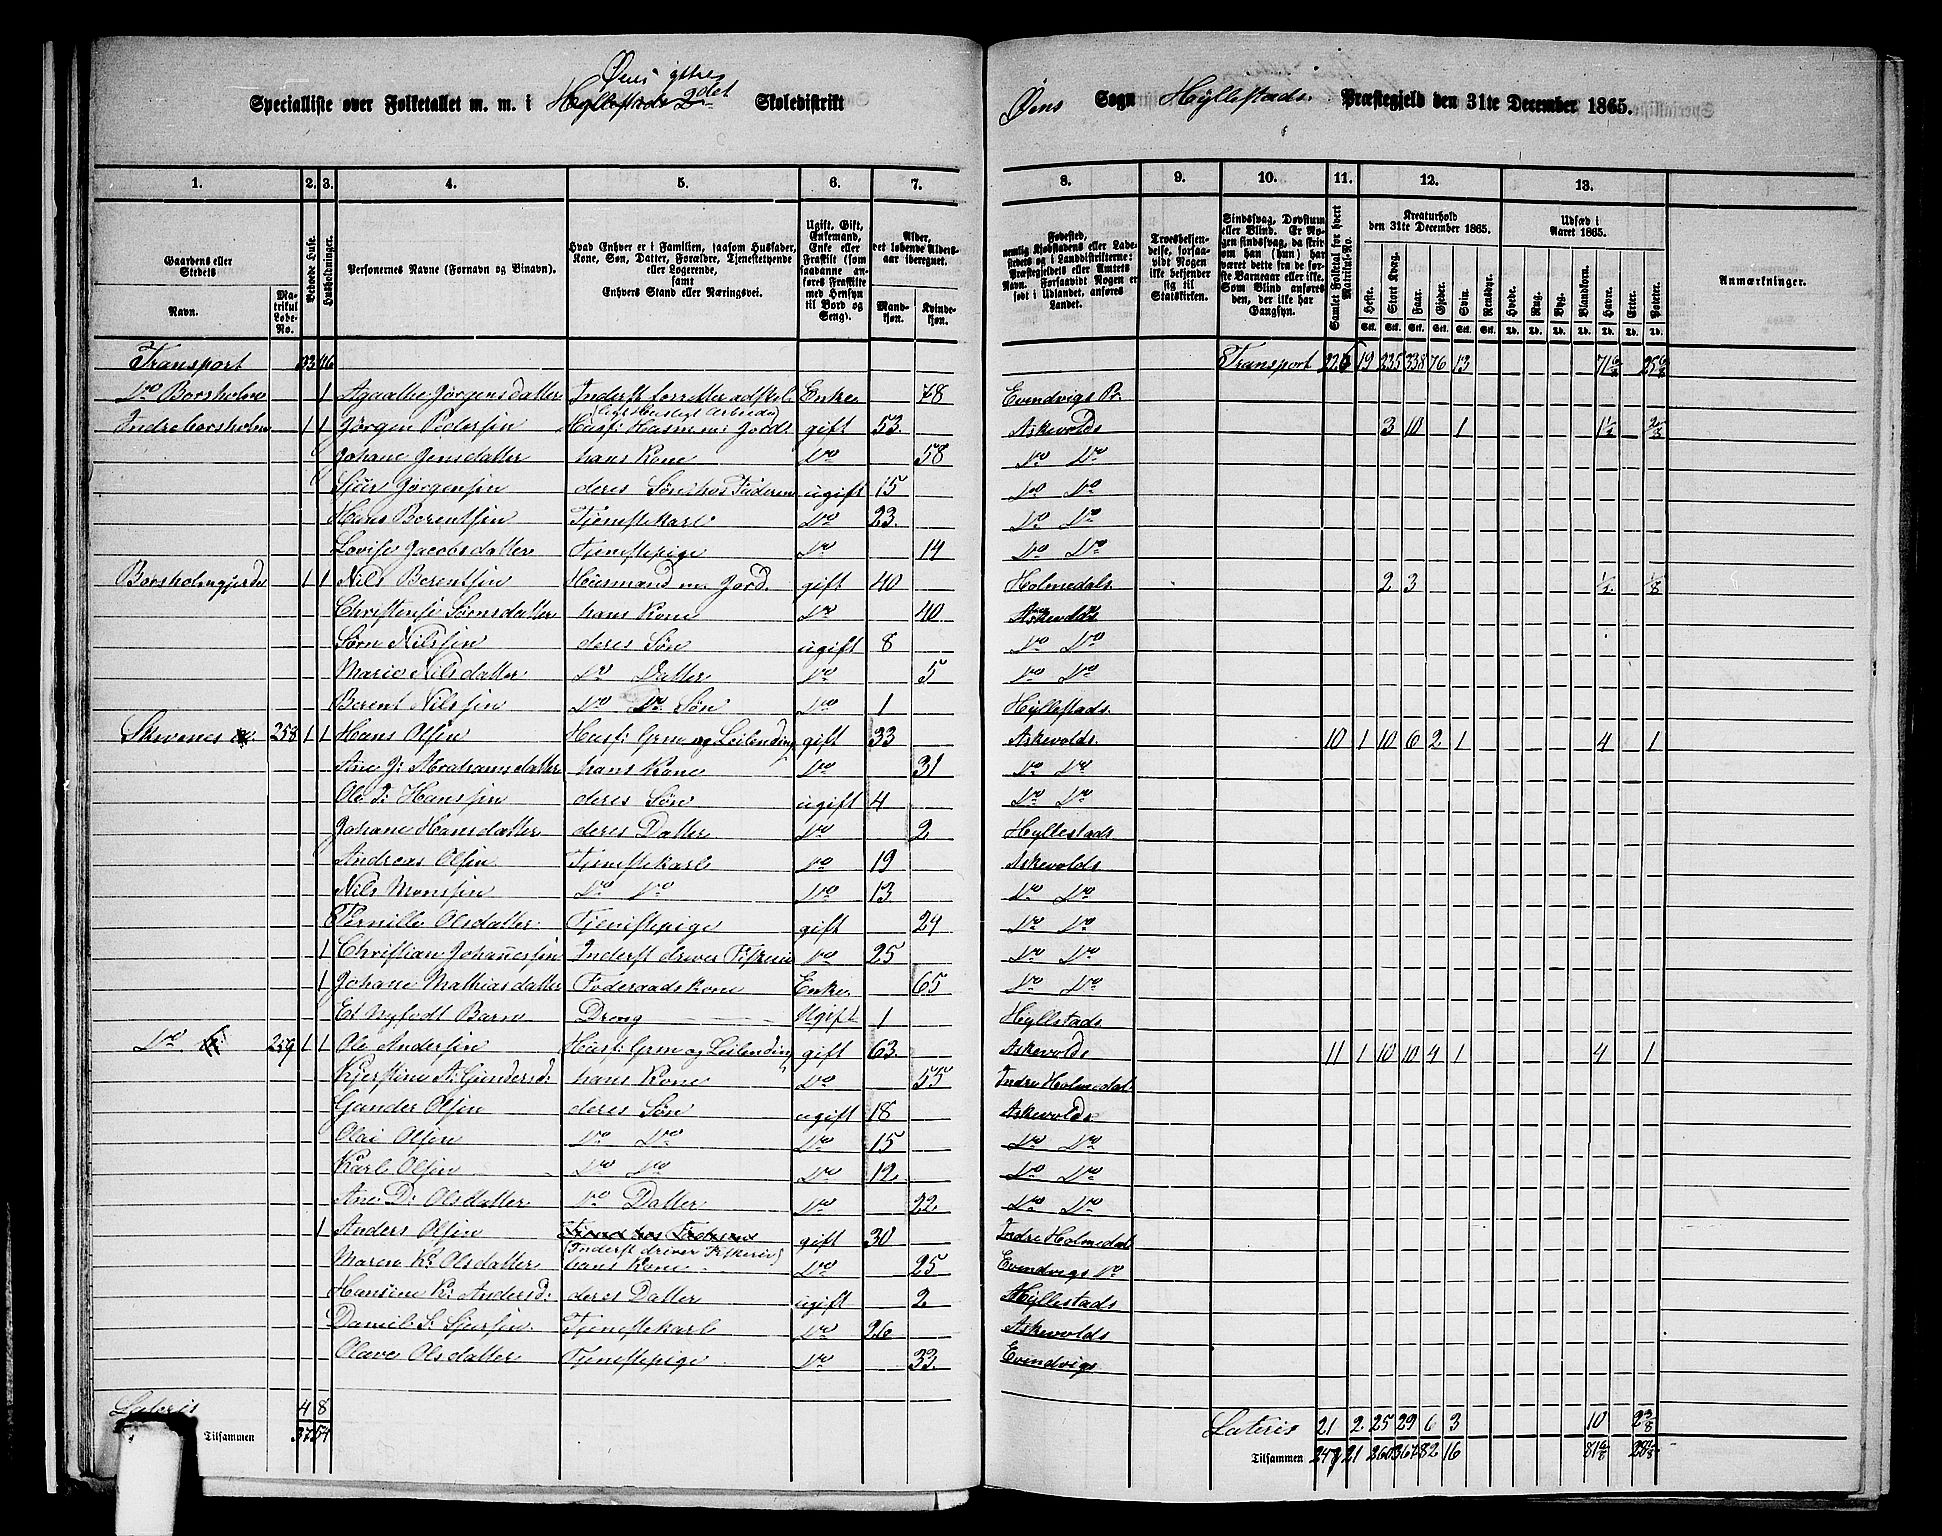 Øens yttre
Specialliste over Folketallet m. m. i Hyllestads 2det Skoledistrikt
Øens Sogn Hyllestads Præstegjeld den 31te December 1865.
1. 2. 3. 4. 5. 6. 7. 8. 9. 10. 11. 12. 13.
Gaardens eller Stedets
Navn.
Matrikul Løbe-No.
Beboede Huse.
Husholdninger.
Personernes Navne (Fornavn og Binavn).
Hvad Enhver er i Familien, saasom Husfader, Kone, Søn, Datter, Forældre, Tjenestetyende eller Logerende, samt Enhvers Stand eller Næringsvei.
Ugift, Gift, Enkemand, Enke eller Fraskilt (som saadanne anføres Fraskilte med Hensyn til Bord og Seng).
Alder, det løbende Aldersaar iberegnet.
Mandkjøn.
Kvindekjøn.
Fødested, nemlig Kjøbstadens eller Ladestedets og i Landdistrikterne: Præstegjeldets eller Amtets Navn. Forsaavidt Nogen er født i Udlandet, anføres Landet.
Troesbekjendelse, forsaavidt Nogen ikke bekjender sig til Statskirken.
Sindssvag, Døvstum eller Blind. Er Nogen sindssvag, da skrives om han (hun) har været dette fra de første Barneaar eller ikke. Som Blind anføres den, der ikke har Gangsyn.
Samlet Folketal for hvert Matrikul-No.
Kreaturhold den 31te December 1865.
Heste. Stort Kvæg. Faar. Gjeder. Sviin. Rensdyr.
Udsæd i Aaret 1865.
Hvede. Rug. Byg. Blandkorn. Havre. Erter. Poteter.
Anmærkninger.
Transport 33 46 Transport 226 19 235 338 76 13
Do Borsholm 1 Agathe Jørgensdatter Enke 78 Evindvigs Pr.
Indreborsholm 1 1 Jørgen Pedersen Husf: Husm m: Jord. gift 53 Askevolds 3 10 1 1½
Johane Jensdatter hans Kone Do 58 Do Do
Sjur Jørgensen deres Søn hos Faderen ugift 15 Do Do
Hans Berentsen Tjenestekarl Do 23 Do Do
Lovise Jacobsdatter Tjenestepige Do 14 Do Do
Borsholmgjerdet 1 1 Nils Berentsen Husmand m. Jord. gift 40 Holmedals 2 3 ½ ⅛
Christense Sørnsdatter hans Kone Do 40 Askevolds
Sørn Nilssen deres Søn ugift 8 Do Do
Marie Nilsdatter Do Datter Do 5 Do Do
Berent Nilssen Do Do Søn Do 1 Hyllestads
Skivenes 258 1 1 Hans Olsen Husf: Grm og Leilending gift 33 Askevolds 10 1 10 6 2 1 4 1
Ane J: Abrahamsdatter hans Kone Do 31 Do Do
Ole J: Hanssen deres Søn ugift 4 Do Do
Johane Hansdatter deres Datter Do 2 Hyllestads
Andreas Olsen Tjenestekarl Do 19 Askevolds
Nils Monssen Do Do Do 13 Do Do
Pernille Olsdatter Tjenestepige gift 24 Do Do
1 Christian Johannessen Inderst driver Fiskeri Do 25 Do Do
1 Johane Mathiasdatter Føderaadskone Enke 65 Do Do
Et Nyfødt Barn Dreng Ugift 1 Hyllestads
Do 259 1 1 Ole Andersen Husf: Grm og Leilending gift 63 Askevolds 11 1 10 10 4 1 4 1
Kjerstine A: Gundersd: hans Kone Do 55 Indre Holmedal
Gunder Olsen deres Søn ugift 18 Askevolds
Olai Olsen Do Do Do 15 Do Do
Karl Olsen Do Do Do 12 Do Do
Ane D: Olsdatter Do Datter Do 22 Do Do
1 Anders Olsen (Inderst driver Fiskeri) gift 30 Indre Holmedal
Maren K: Olsdatter hans Kone Do 25 Evindvigs Do
Hansine K: Andersd: deres Datter ugift 2 Hyllestads
Daniel S: Sjursen Tjenestekarl Do 26 Askevolds
Olave Olsdatter Tjenestepige Do 33 Evindvigs
Lateris 4 8 Lateris 21 2 25 29 6 3 10 2⅜
Tilsammen 37 54 Tilsammen 247 21 260 367 82 16